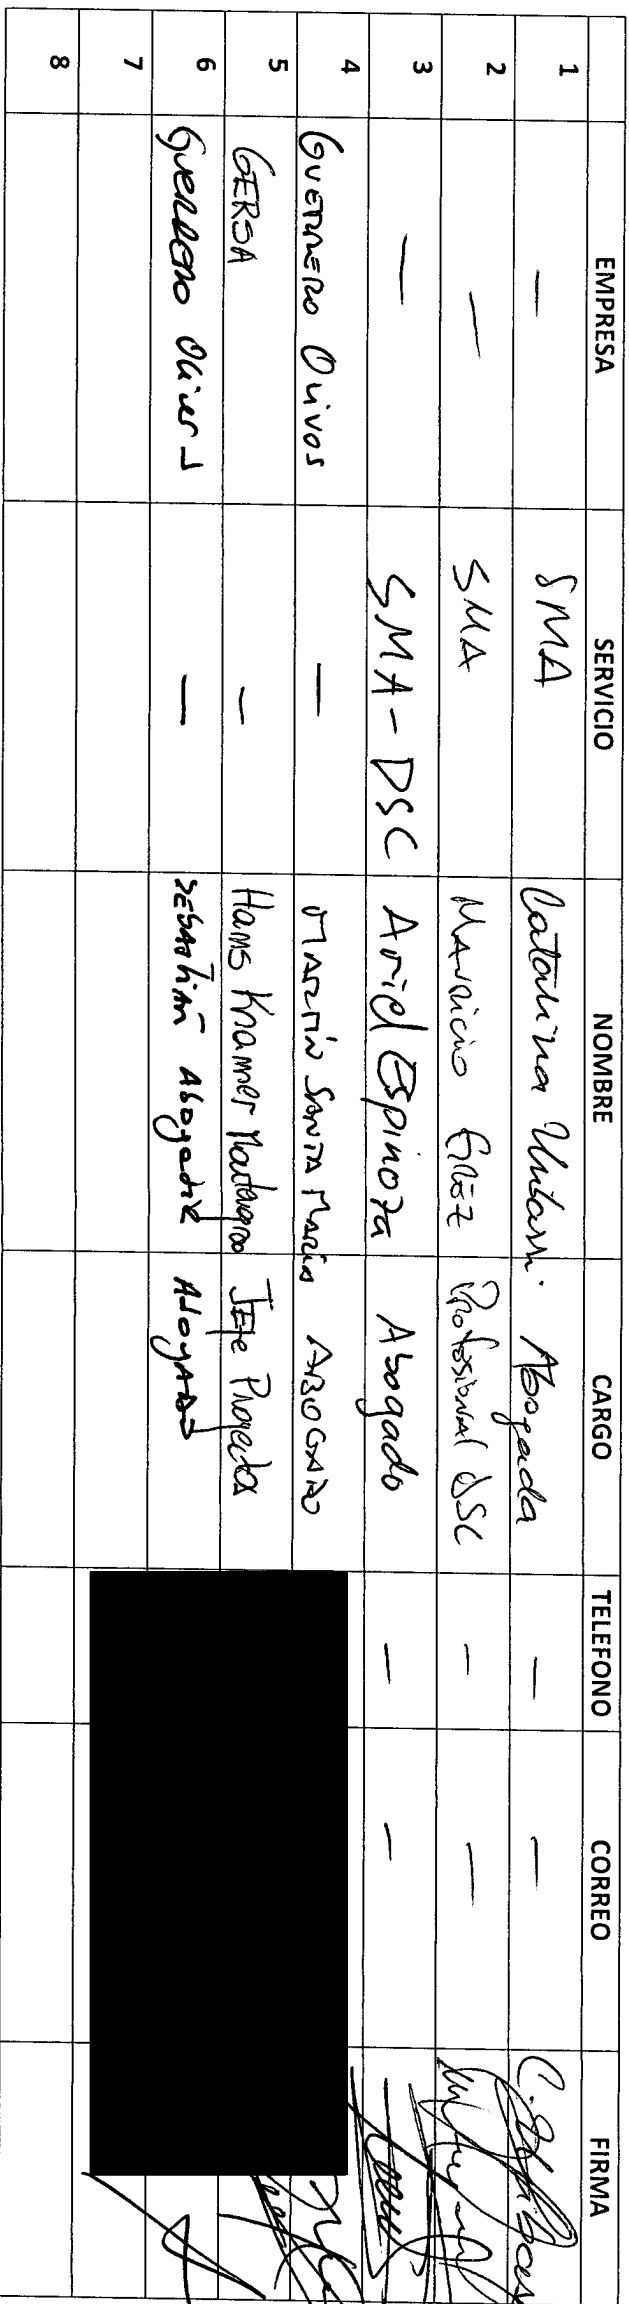 EMPRESA SERVICIO NOMBRE CARGO TELEFONO CORREO FIRMA
1 — SMA Catalina Uribarri. Abogada — —
2 — SMA Mauricio Grez Profesional DSC — —
3 — SMA-DSC Ariel Espinoza Abogado — —
4 Guerrero Olivos — Martín Santa María Abogado
5 GERSA — Hans Kramer Jefe Proyectos
6 Guerrero Olivos — Sebastián Abogado
7
8